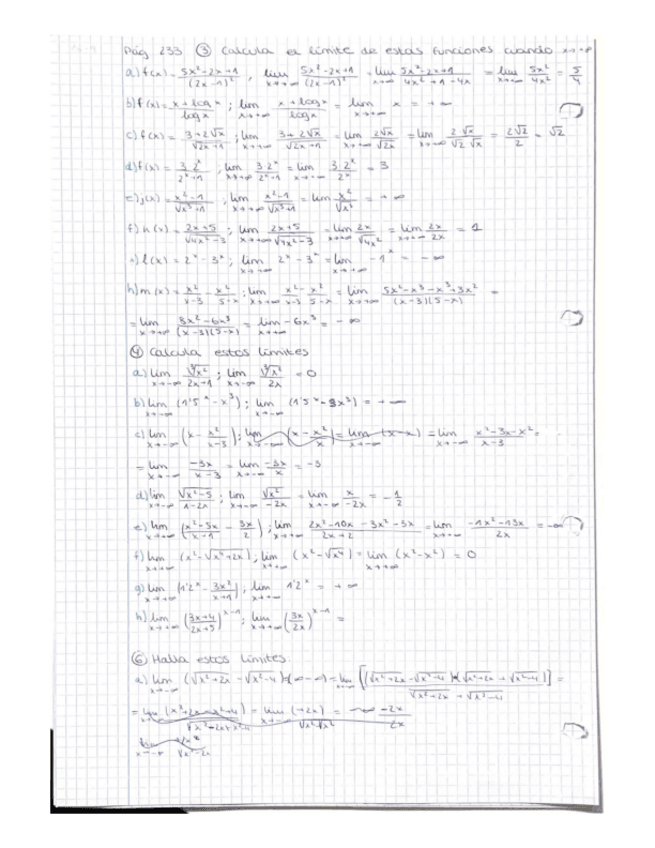 Pág 233 ③ Calcula el límite de estas funciones cuando x→+∞
a) f(x) = (5x²-2x+1)/(2x-1)² , lim x→+∞ (5x²-2x+1)/(2x-1)² = lim x→+∞ (5x²-2x+1)/(4x²+1-4x) = lim x→+∞ 5x²/4x² = 5/4
b) f(x) = (x+log x)/log x ; lim x→+∞ (x+log x)/log x = lim x→+∞ x = +∞
c) f(x) = (3+2√x)/√(2x+1) ; lim x→+∞ (3+2√x)/√(2x+1) = lim x→+∞ 2√x/√2x = lim x→+∞ 2√x/(√2 √x) = 2√2/2 = √2
d) f(x) = 3·2ˣ/(2ˣ+1) ; lim x→+∞ 3·2ˣ/(2ˣ+1) = lim x→+∞ 3·2ˣ/2ˣ = 3
e) j(x) = (x²-1)/√(x³+1) ; lim x→+∞ (x²-1)/√(x³+1) = lim x²/√x³ = +∞
f) h(x) = (2x+5)/√(4x²-3) ; lim x→+∞ (2x+5)/√(4x²-3) = lim x→+∞ 2x/√4x² = lim x→+∞ 2x/2x = 1
l(x) = 2ˣ-3ˣ ; lim x→+∞ 2ˣ-3ˣ = lim x→+∞ -1ˣ = -∞
h) m(x) = x²/(x-3) - x²/(5-x) ; lim x→+∞ x²/(x-3) - x²/(5-x) = lim x→+∞ (5x²-x³-x³+3x²)/((x-3)(5-x)) =
= lim x→+∞ (8x²-6x³)/((x-3)(5-x)) = lim x→+∞ -6x³ = -∞
④ Calcula estos límites
a) lim x→-∞ ∛x²/(2x+1) ; lim x→-∞ ∛x²/2x = 0
b) lim x→-∞ (1'5ˣ-x³) ; lim x→-∞ (1'5ˣ-3x³) = +∞
c) lim x→-∞ (x - x²/(x-3)) ; = lim x→-∞ (x²-3x-x²)/(x-3) =
= lim x→-∞ -3x/(x-3) = lim x→-∞ -3x/x = -3
d) lim x→-∞ √(x²-5)/(1-2x) ; lim x→-∞ √x²/-2x = lim x→-∞ x/-2x = -1/2
e) lim x→+∞ ((x²-5x)/(x+1) - 3x/2) ; lim x→+∞ (2x²-10x-3x²-5x)/(2x+2) = lim x→+∞ (-1x²-13x)/2x = -∞
f) lim x→+∞ (x²-√(x⁴+2x)) ; lim x→+∞ (x²-√x⁴) = lim x→+∞ (x²-x²) = 0
g) lim x→+∞ (1'2ˣ - 3x²/(x+1)) ; lim x→+∞ 1'2ˣ = +∞
h) lim x→+∞ ((3x+4)/(2x+5))ˣ⁻¹ ; lim x→+∞ (3x/2x)ˣ⁻¹ =
⑥ Halla estos límites
a) lim x→-∞ (√(x²+2x) - √(x²-4)) = (∞-∞) = lim x→-∞ [(√(x²+2x) - √(x²-4))(√(x²+2x) + √(x²-4))]/(√(x²+2x) + √(x²-4)) =